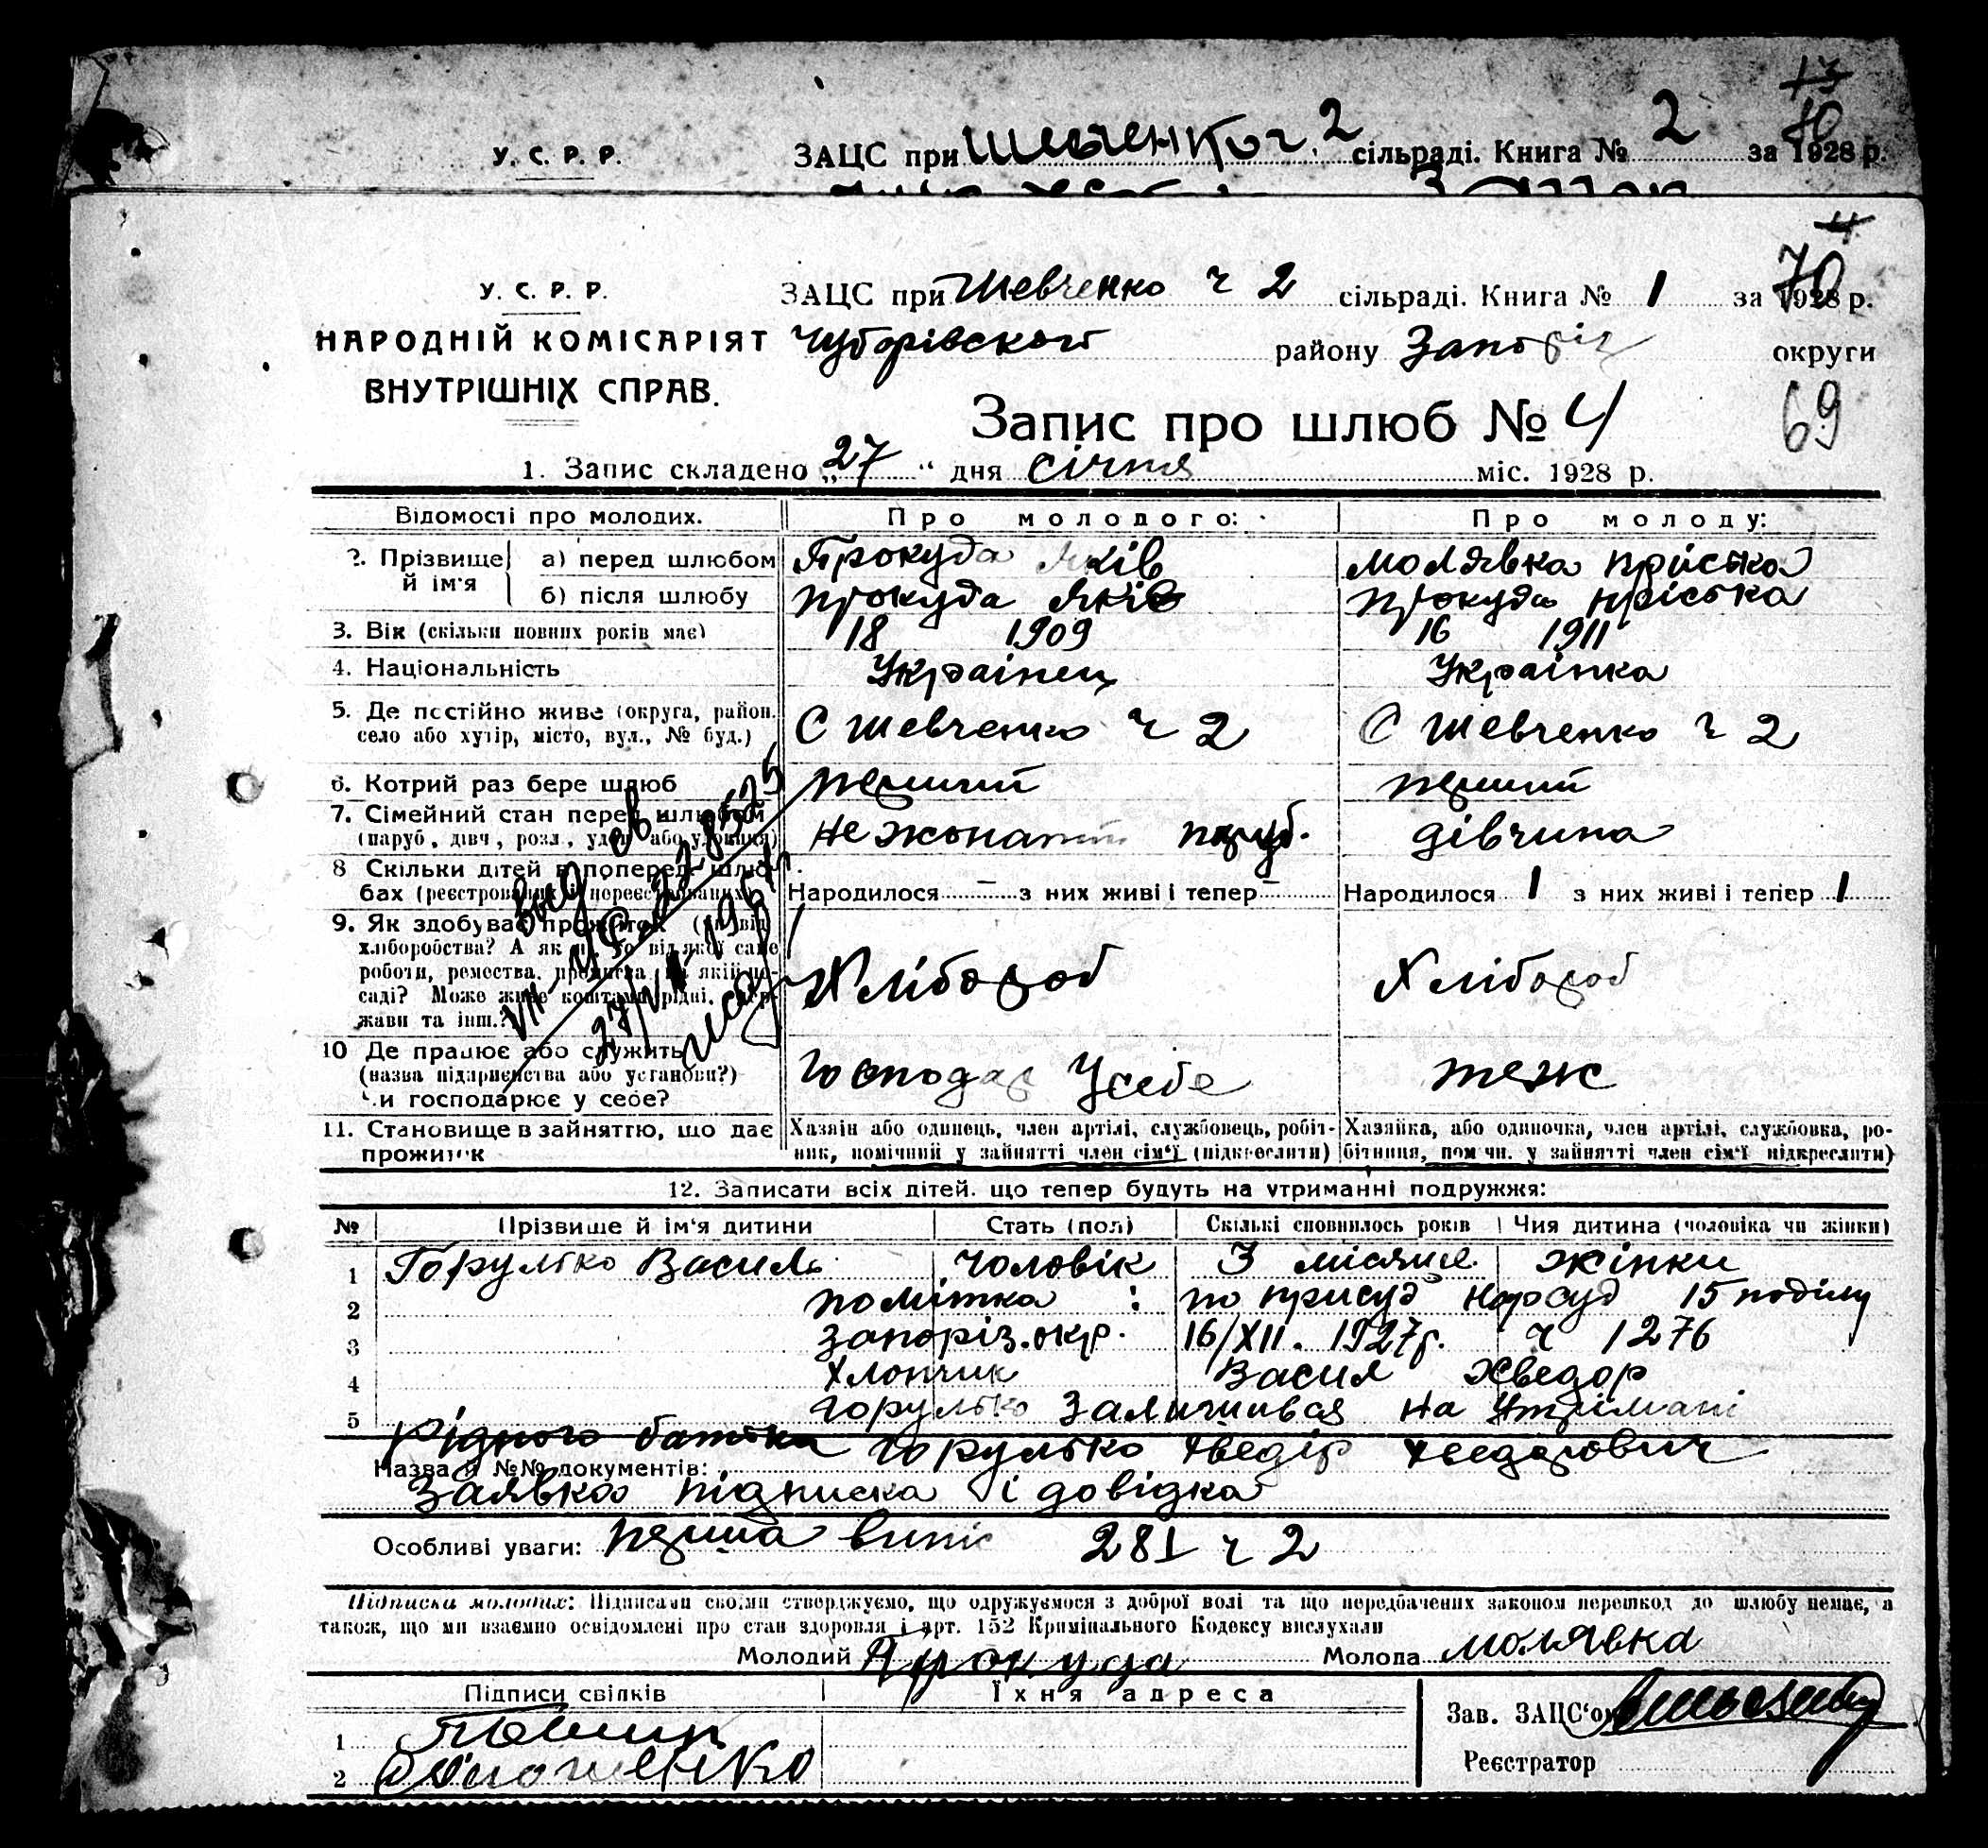 13
10
У. С. Р. Р. ЗАЦС при Шевченко ч. 2 сільраді. Книга № 2 за 1928 р.
4
70
У. С. Р. Р. ЗАЦС при Шевченко ч 2 сільраді. Книга № 1 за 1928 р.
НАРОДНІЙ КОМІСАРІЯТ Чубарівского району Запоріз округи
ВНУТРІШНІХ СПРАВ.
Запис про шлюб № 4 69
1. Запис складено „27“ дня січня міс. 1928 р.
Відомості про молодих. Про молодого: Про молоду:
2. Прізвище й ім'я а) перед шлюбом Прокуда Яків Молявка Прістка
б) після шлюбу Прокуда Яків Прокуда Прістка
3. Вік (скільки повних років має) 18 1909 16 1911
4. Національність Українец Українка
5. Де постійно живе (округа, район, С Шевченко ч 2 С Шевченко ч 2
село або хутір, місто, вул., № буд.)
6. Котрий раз бере шлюб перший перший
7. Сімейний стан перед шлюбом не жонатий паруб. дівчина
(паруб., дівч., розл., удов. або удовиця)
8 Скільки дітей в поперед. шлюбах (реєстрованих і нереєстрованих) Народилося – з них живі і тепер – Народилося 1 з них живі і тепер 1
9. Як здобуває прожиток (чи від
хліборобства? А як ні, то від якої саме
роботи, ремества, промисла, на якій по- Хлібороб Хлібороб
саді? Може живе коштами рідні, дер-
жави та інш.?)
выд св
VII-ЯР 228525
27/VII 1967г
10 Де працює або служить
(назва підприємства або установи?) Господар Усебе теж
Чи господарює у себе?
11. Становище в зайняттю, що дає прожиток Хазяїн або одинець, член артілі, службовець, робіт- Хазяйка, або одиночка, член артілі, службовка, ро-
ник, помічний у зайнятті член сім'ї (підкреслити) бітниця, помічн. у зайнятті член сім'ї підкреслити)
12. Записати всіх дітей, що тепер будуть на утриманні подружжя:
№ Прізвище й ім'я дитини Стать (пол) Скількі сповнилось років Чия дитина (чоловіка чи жінки)
1 Горулько Василь чоловік 3 місяце жінки
2 помітка : по присуд Нарсуд 15 поділу
3 запоріз. окр. 16/XII. 1927 р. ч 1276
4 Хлопчик Васил Хведор
5 горулько Залишивая на Утрімані
Рідного батька горулько Хведір Хведорович
Назва й №№ документів:
Заявка підписка і довідка
Особливі уваги: перша випис 281 ч 2
Підписка молодих: Підписами своїми стверджуємо, що одружуємося з доброї волі та що передбачених законом перешкод до шлюбу немає, а
також, що ми взаємно освідомлені про стан здоровля і арт. 152 Кримінального Кодексу вислухали
Молодий Прокуда Молода Молявка
Підписи свідків Їхня адреса
Зав. ЗАЦС'ом
1
2
Реєстратор